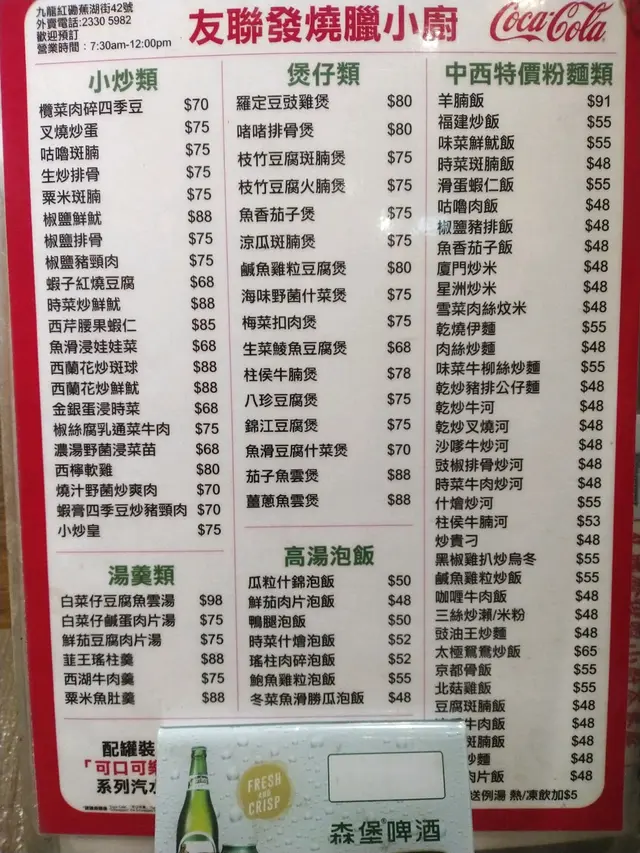 九龍紅磡蕪湖街42號
外賣電話:2330 5982
歡迎預訂
營業時間：7:30am-12:00pm
友聯發燒臘小廚
Coca-Cola
小炒類
欖菜肉碎四季豆 $70
叉燒炒蛋 $75
咕嚕斑腩 $75
生炒排骨 $75
粟米斑腩 $75
椒鹽鮮魷 $88
椒鹽排骨 $75
椒鹽豬頸肉 $75
蝦子紅燒豆腐 $68
時菜炒鮮魷 $88
西芹腰果蝦仁 $85
魚滑浸娃娃菜 $68
西蘭花炒斑球 $88
西蘭花炒鮮魷 $88
金銀蛋浸時菜 $68
椒絲腐乳通菜牛肉 $75
濃湯野菌浸菜苗 $68
西檸軟雞 $80
燒汁野菌炒爽肉 $70
蝦膏四季豆炒豬頸肉 $70
小炒皇 $75
湯羹類
白菜仔豆腐魚雲湯 $98
白菜仔鹹蛋肉片湯 $75
鮮茄豆腐肉片湯 $75
韮王瑤柱羹 $88
西湖牛肉羹 $75
粟米魚肚羹 $88
配罐裝
「可口可樂
系列汽水
煲仔類
羅定豆豉雞煲 $80
啫啫排骨煲 $80
枝竹豆腐斑腩煲 $75
枝竹豆腐火腩煲 $75
魚香茄子煲 $75
涼瓜斑腩煲 $75
鹹魚雞粒豆腐煲 $80
海味野菌什菜煲 $75
梅菜扣肉煲 $75
生菜鯪魚豆腐煲 $68
柱侯牛腩煲 $78
八珍豆腐煲 $75
錦江豆腐煲 $75
魚滑豆腐什菜煲 $70
茄子魚雲煲 $88
薑蔥魚雲煲 $88
高湯泡飯
瓜粒什錦泡飯 $50
鮮茄肉片泡飯 $48
鴨腿泡飯 $50
時菜什燴泡飯 $52
瑤柱肉碎泡飯 $52
鮑魚雞粒泡飯 $55
冬菜魚滑勝瓜泡飯 $48
中西特價粉麵類
羊腩飯 $91
福建炒飯 $55
味菜鮮魷飯 $55
時菜斑腩飯 $48
滑蛋蝦仁飯 $55
咕嚕肉飯 $48
椒鹽豬排飯 $48
魚香茄子飯 $48
廈門炒米 $48
星洲炒米 $48
雪菜肉絲炆米 $48
乾燒伊麵 $55
肉絲炒麵 $48
味菜牛柳絲炒麵 $55
乾炒豬排公仔麵 $48
乾炒牛河 $48
乾炒叉燒河 $48
沙嗲牛炒河 $48
豉椒排骨炒河 $48
時菜牛肉炒河 $48
什燴炒河 $55
柱侯牛腩河 $53
炒貴刁 $48
黑椒雞扒炒烏冬 $55
鹹魚雞粒炒飯 $55
咖喱牛肉飯 $48
三絲炒瀨/米粉 $48
豉油王炒麵 $48
太極鴛鴦炒飯 $65
京都骨飯 $55
北菇雞飯 $55
豆腐斑腩飯 $48
牛肉飯 $48
斑腩飯 $48
炒麵 $48
肉片飯 $48
送例湯 熱/凍飲加$5
FRESH
AND
CRISP
森堡啤酒